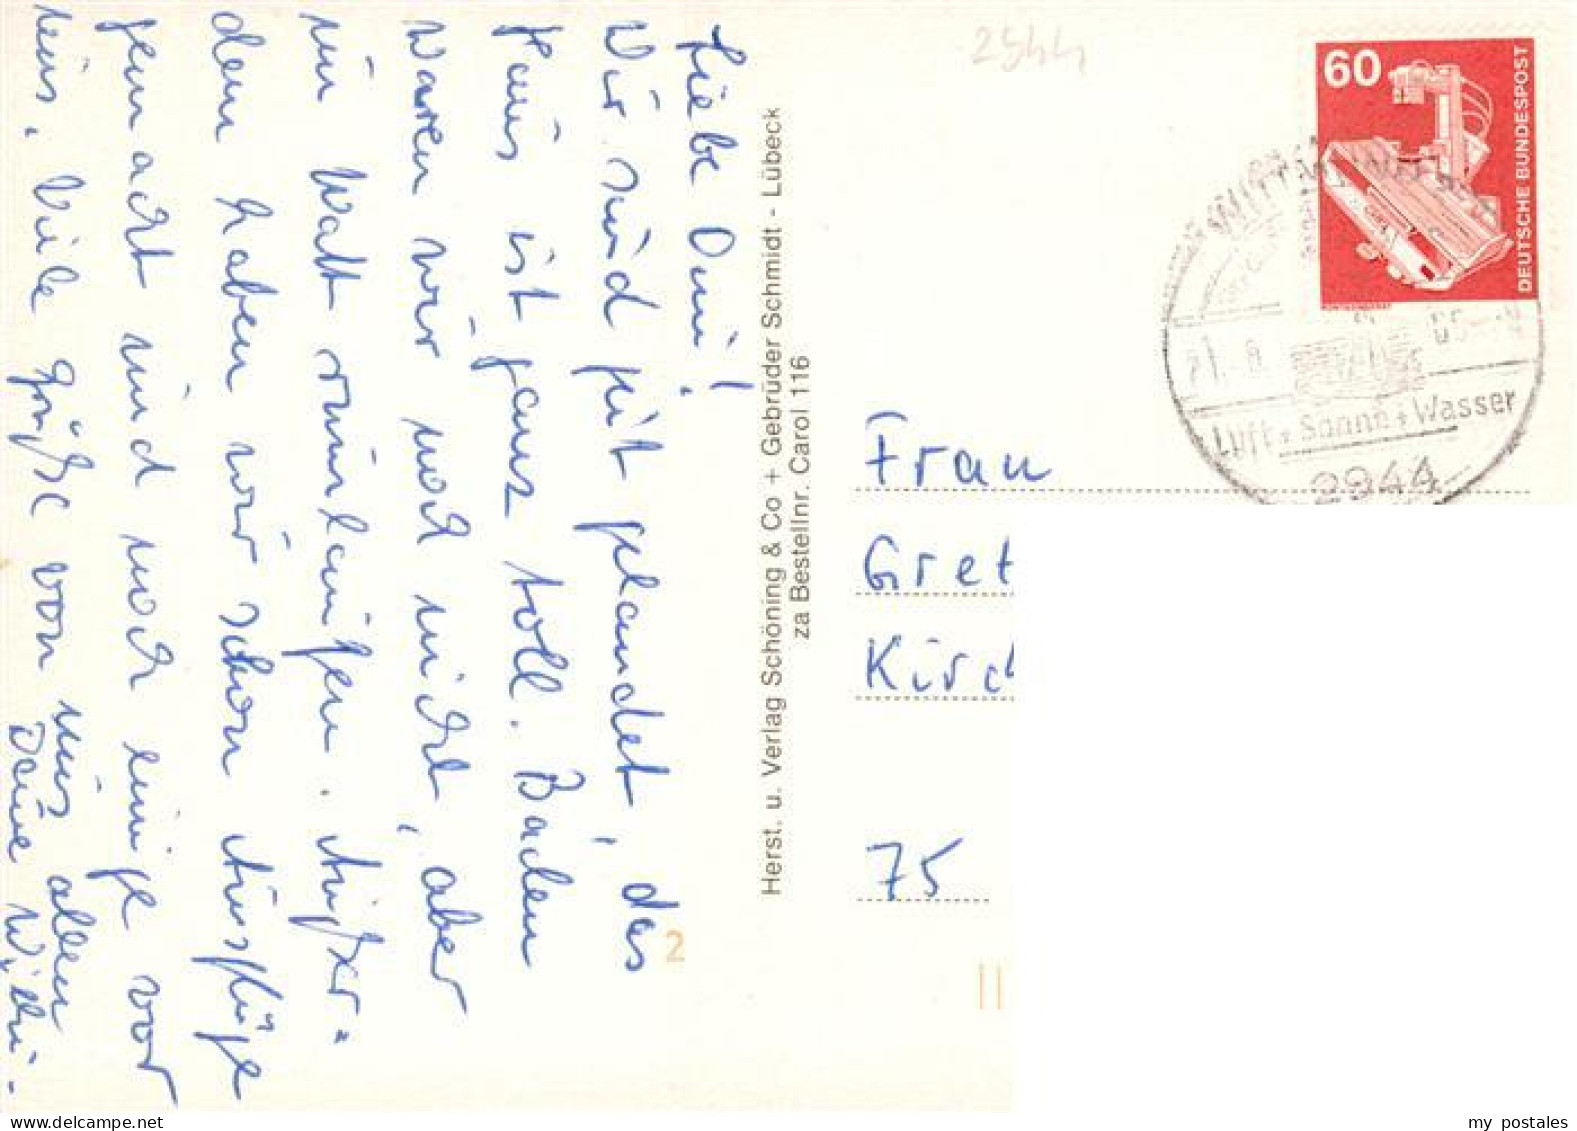 Liebe Omi!
Wir sind gut gelandet, das
Haus ist ganz toll. Baden
waren wir noch nicht, aber
im Watt rumlaufen. Außer-
dem haben wir schon Ausflüge
gemacht und noch einige vor
uns. Viele Grüße von uns allen
Deine
Herst. u. Verlag Schöning & Co + Gebrüder Schmidt - Lübeck
za Bestellnr. Carol 116
2944
60
DEUTSCHE BUNDESPOST
Luft + Sonne + Wasser
2944
Frau
Gret
Kirch
75
2
my postales